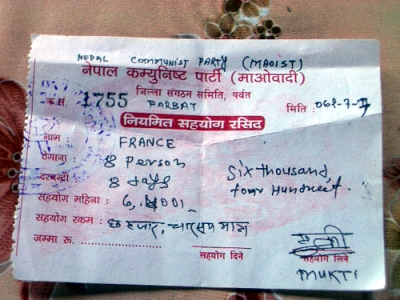 NEPAL COMMUNIST PARTY (MAOIST)
नेपाल कम्युनिष्ट पार्टी (माओवादी)
जिल्ला संगठन समिति, पर्वत
क्र.सं. 1755 PARBAT मिति :
नियमित सहयोग रसिद
नाम : FRANCE
ठेगाना : 8 person Six thousand
दरबन्दी : 8 days four hundred.
सहयोग महिना :
सहयोग रकम : छ हजार, चारसय मात्र
जम्मा रू.
सहयोग दिने सहयोग लिने
MUKTI